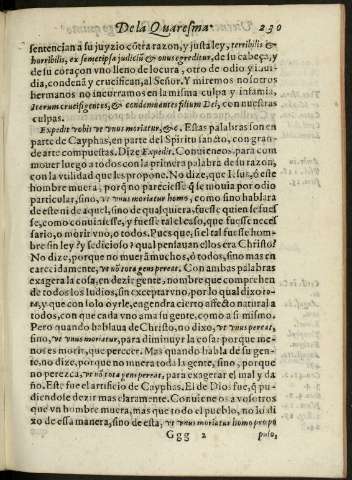 De la Quaresma. 230
sentencian a su juyzio cõtra razon, y justa ley, terribilis &
horribilis, ex semetipsa judiciũ & onus egreditur, de su cabeça, y
de su coraçon vno lleno de locura, otro de odio y
dia, condenã y crucifican, al Señor. Y miremos nosotros
hermanos no incurramos en la misma culpa y infamia,
iterum crucifigentes, & condemnantes filium Dei, con nuestras
culpas.
Expedit vobis vt vnus moriatur, &c. Estas palabras son en
parte de Cayphas, en parte del Spiritu sancto, con gran-
de arte compuestas. Dize Expedit. Conuieneos, para com
mouer luego a todos con la primera palabra de su razon,
con la vtilidad que les propone. No dize, que Iesus, ó este
hombre muera, porq̃ no pareciesse q̃ se mouia por odio
particular, sino, vt vnus moriatur homo, como sino hablara
de este ni de aquel, sino de qualquiera, fuesse quien se fues
se, como conuiniesse, y fuesse tal el caso, que fuesse neces
sario, o morir vno, ó todos. Pues que, si el tal fuesse hom-
bre sin ley? y sedicioso? qual pensauan ellos era Christo?
No dize, porque no muerã muchos, ó todos, sino mas en
carecidamente, vt nõ tota gens pereat. Con ambas palabras
exagera la cosa, en dezir gente, nombre que comprehen
de todos los Iudios, sin exceptar vno, por lo qual dixo to-
ta, y que con solo oyrle, engendra cierto affecto natural a
todos, con que cada vno ama su gente, como a si mismo.
Pero quando hablaua de Christo, no dixo, vt vnus pereat,
sino, vt vnus moriatur, para diminuyr la cosa: porque me-
nos es morir, que perecer. Mas quando habla de su gen-
te, no dize, porque no muera toda la gente, sino, porque
no perezca, vt nõ tota gens pereat, para exagerar el mal y da
ño. Este fue el artificio de Cayphas. El de Dios fue, q̃ pu-
diendole dezir mas claramente. Conuiene os a vosotros
que vn hombre muera, mas que todo el pueblo, no lo di
xo de essa manera, sino de esta, vt vnus moriatur homo pro po
Ggg 2 pulo,